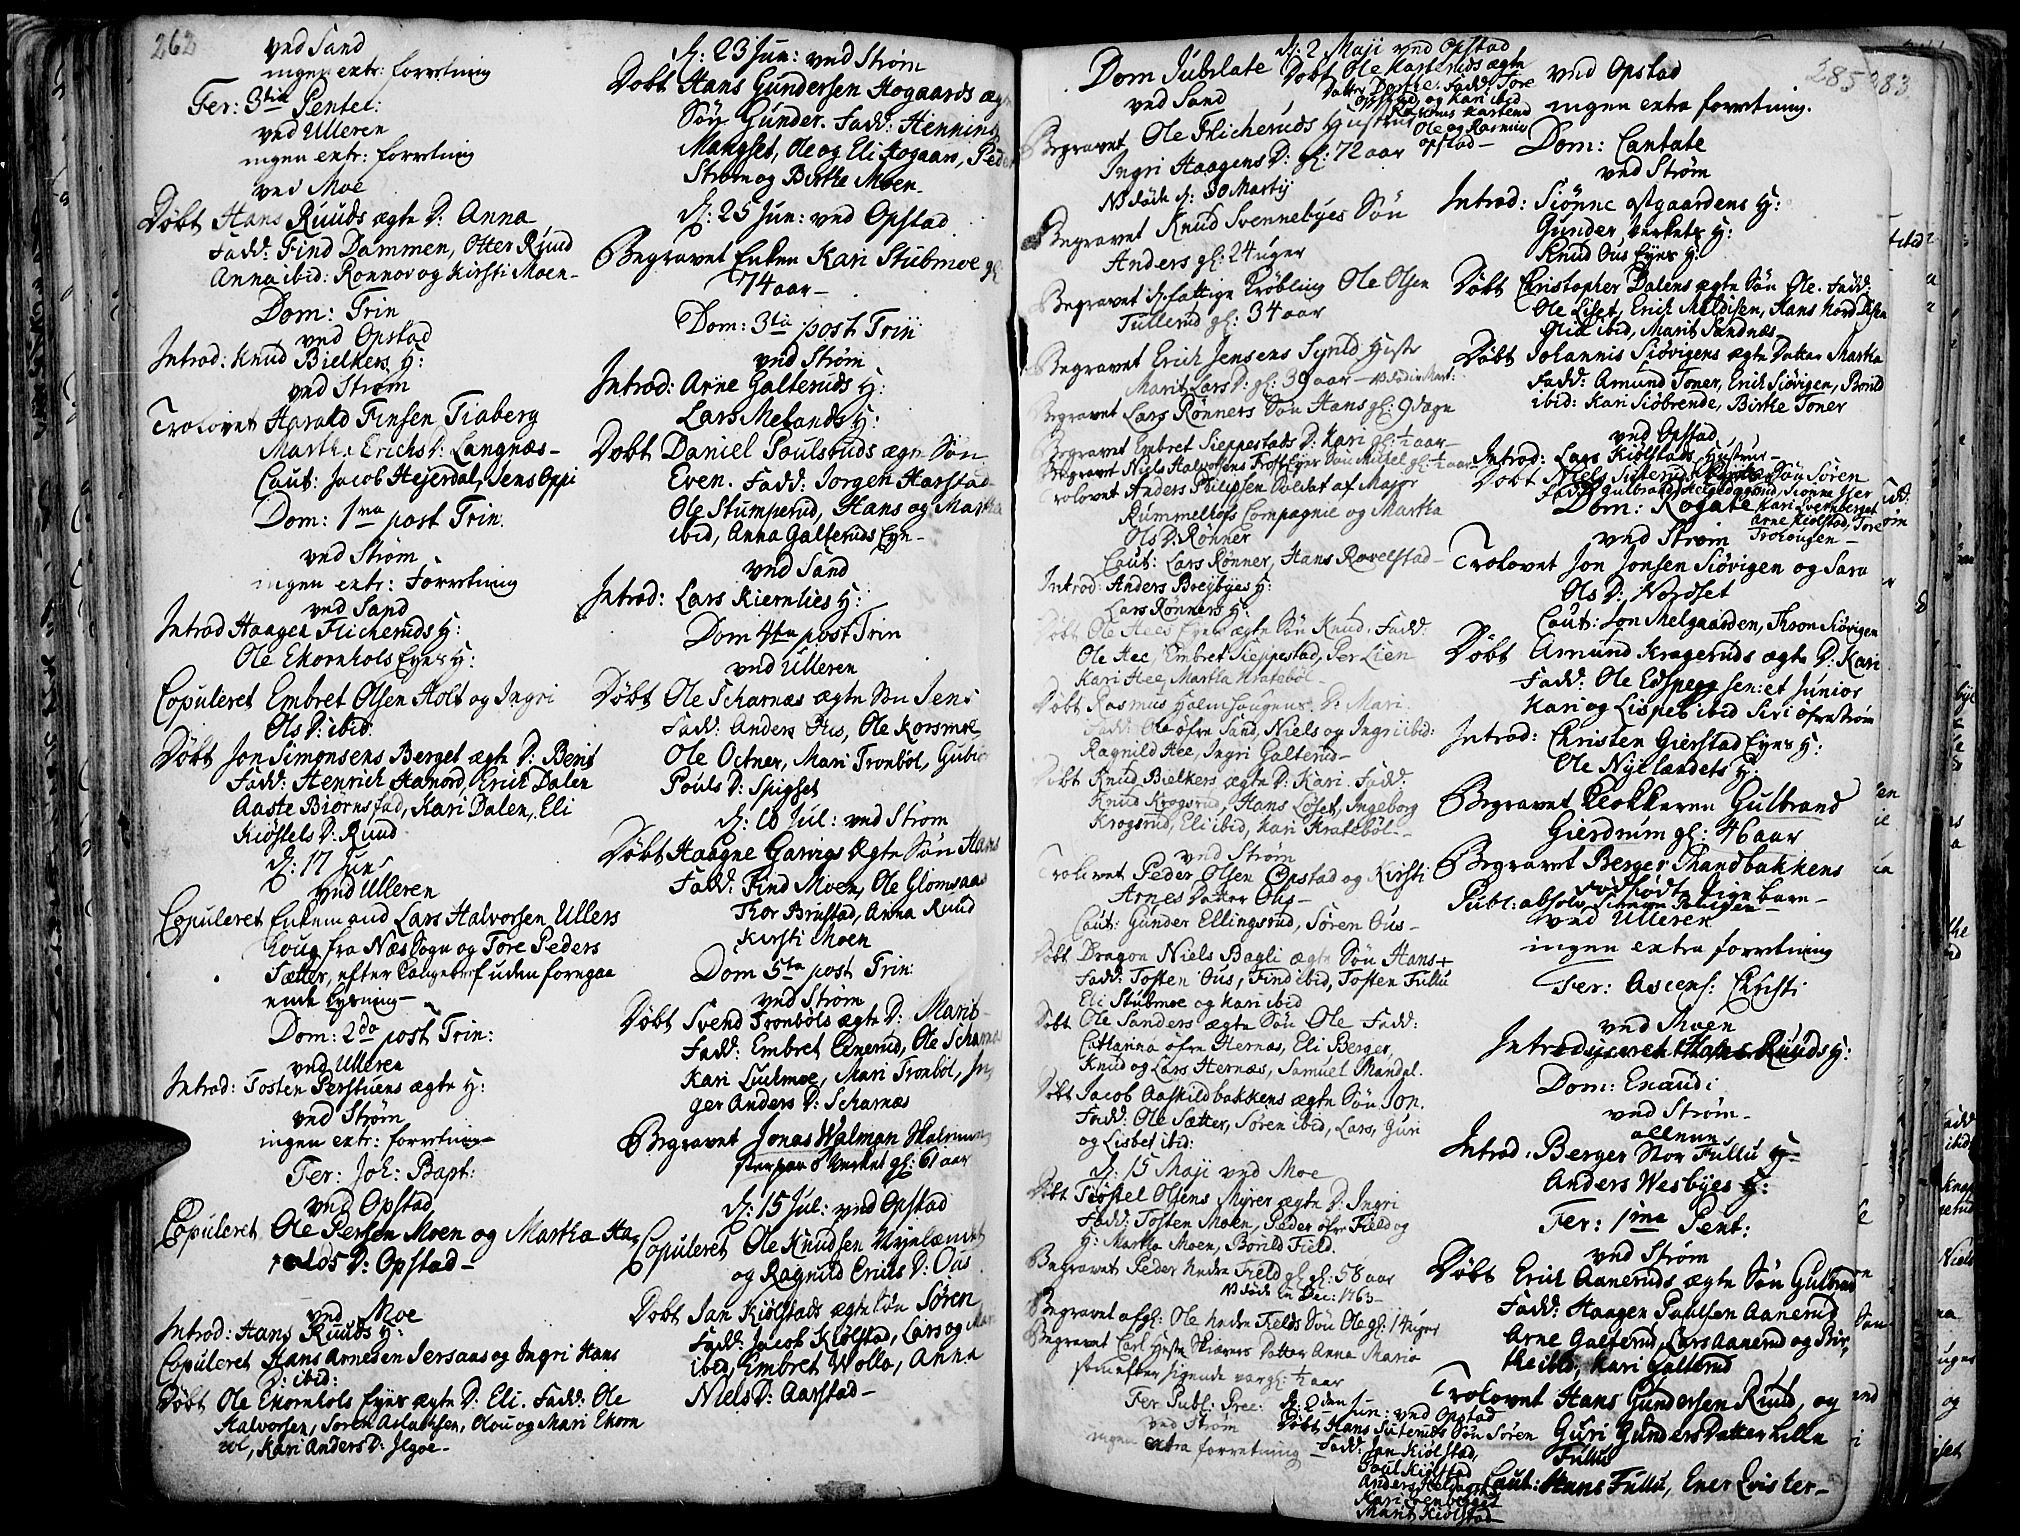 262
ved Sand
ingen extr: forretning
Fer: 3tia Pentec:
ved Ulleren
ingen extr: forretning
ved Moe
Døbt Hans Ruuds ægte D: Anna
Fadd: Find Dammen, Otter Ruud
Anna ibid: Ronnov og Kirsti Moen
Dom: Trin
ved Opstad
Introd: Knud Bielkers H:
ved Strøm
Trolovet Harald Finsen Tiaberg
Martha Erichs D: Langnæs
Caut: Jacob Hejerdal, Jens Oppi
Dom: 1ma post Trin:
ved Strøm
ingen extr: Forretning
ved Sand
Introd Haagen Flicheruds H:
Ole Ekornhols Eyes H:
Copuleret Embret Olsen Holt og Ingri
Ols D: ibid
Døbt Jon Simonsens Berget ægte D: Berit
Fadd: Henrich Hamord, Erich Dalen
Aaste Biørnstad, Kari Dalen, Eli
Kiøstels D: Ruud
d: 17 Jun
ved Ulleren
Copuleret Enkemand Lars Halvorsen Ullers
houg fra Næs Sogn og Tore Peders
Sætter, efter uden foregaa
ende Lysning
Dom: 2da post Trin:
ved Ulleren
Introd: Tosten Perstuens ægte H:
ved Strøm
ingen extr: forretning
Fer: Joh: Bapt:
ved Opstad
Copuleret Ole Persen Moen og Martha Ha
ralds D: Opstad
ved Moe
Introd: Hans Ruuds H:
Copuleret Hans Arnesen Sersaas og Ingri Hans
D: ibid:
Døbt Ole Ekornhols Eyes ægte D: Eli. Fadd: Ole
Halvorsen, Søren Aslaksen, Olou og Mari Ekorn
hol, Kari Anders D: Ilgoe
d: 23 Jun: ved Strøm
Døbt Hans Gundersen Aogaards ægte
Søn Gunder. Fadd: Henning
Mangset, Ole og Eli Aogaars, Peder
Strøm og Birthe Moen
d: 25 Jun: ved Opstad
Begravet Enken Kari Stubmoe gl:
74 aar
Dom: 3tia post Trin
ved Strøm
Introd: Arne Galteruds H:
Lars Melands H:
Døbt Daniel Poulsruds ægte Søn
Even. Fadd: Jørgen Harstad
Ole Stumperud, Hans og Martha
ibid, Anna Galteruds Eye
ved Sand
Introd: Lars Kiernlies H:
Dom 4ta post Trin
ved Ulleren
Døbt Ole Scharnæs ægte Søn Jens
Fadd: Anders Hus, Ole Korsmoe
Ole Octner, Mari Tronbøl, Gubiør
Pouls D: Spigset
d: 10 Jul: ved Strøm
Døbt Haagne Garvigs ægte Søn Hans
Fadd: Find Moen, Ole Glomsaas
Thor Brustad, Anna Ruud
Kirsti Moen
Dom 5ta post Trin:
ved Strøm
Døbt Svend Tronbøls ægte D: Marit
Fadd: Embret Enerud, Ole Scharnæs
Kari Luulmoe, Mari Tronbøl, In
ger Anders D: Scharnæs
Begravet Jonas Walman
paa Verket gl: 61 aar
d: 15 Jul: ved Opstad
Copuleret Ole Knudsen Nyelændet
og Ragnild Erichs D: Ous
Døbt Jan Kiølstads ægte Søn Søren
Fadd: Jacob Kiølstad, Lars og Mari
ibid, Embret Wolla, Anna
Niels D: Aarstad
Dom Jubilate
d: 2 Maji ved Opstad
Døbt Ole Kasteruds ægte
Datter Dorthe. Fadd: Tore
Opstad og Kari ibid
Rasmus Kasterud
Ole og Rasmus
Opstad
ved Sand
Begravet Ole Flicheruds Hustrue
Ingri Haagens D: gl: 72 aar
NB døde d: 30 Martij
Begravet Knud Svennebyes Søn
Anders gl: 24 uger
Begravet d. fattige Krøbling Ole Olsen
Tullerud gl: 34 aar
Begravet Erich Jensens Synld Heste
Marit Lars D: gl: 39 aar
Begravet Lars Rønners Søn Hans gl: 9 dage
Begravet Embret Sieppestads D: Kari gl: 1/2 aar
Begravet Niels Halvorsens Eyes Søn Mikel gl: 1/2 aar
Trolovet Anders Philipsen Soldat af Major
Rummelhofs Compagnie og Martha
Ols D: Rønner
Caut: Lars Rønner, Hans Rovelstad
Introd: Anders Breybyes H:
Lars Rønners H:
Døbt Ole Hees Eyes ægte Søn Knud. Fadd:
Ole Hee, Embret Sieppestad, Per Lien
Kari Hee, Martha Kratebøl
Døbt Rasmus Holmhougens D: Mari
Fadd: Ole øfre Sand, Niels og Ingri ibid:
Ragnild Hee, Ingri Galterud
Døbt Knud Bielkers ægte D: Kari. Fadd:
Knud Krogsrud, Hans Løset, Ingeborg
Krogsrud, Eli ibid, Kari Kratebøl
ved Strøm
Trolovet Peder Olsen Opstad og Kirsti
Arnes Datter Ous
Caut: Gunder Ellingsrud, Søren Ous
Døbt Dragon Niels Bagli ægte Søn Hans +
Fadd: Tosten Ous, Find ibid, Tosten Fullu
Eli Stubmoe og Kari ibid
Døbt Ole Sanders ægte Søn Ole Fadd:
Catharina øfre Hernæs, Eli Berger,
Knud og Lars Hernæs, Samuel Mandal
Døbt Jacob Aaskildbakkens ægte Søn Jon.
Fadd: Ole Sætter, Søren ibid, Lars, Guri
og Lisbet ibid:
d: 15 Maji ved Moe
Døbt Tiøstel Olsens Myrer ægte D: Ingri
Fadd: Tosten Moen, Peder øfr Field og
H: Martha Moen, Boruld Field.
Begravet Peder Nedre Field gl: 58 aar
NB døde in Dec: 1763
Begravet afg: Ole Nedre Fields Søn Ole gl: 14 uger
Begravet Carl Heste Skiærers Datter Anna Maria
som efter sigende var gl: 1/2 aar
Fer: Publ: Prec:
ved Strøm
ingen extra forretning
d: 2den Jun: ved Opstad
Døbt Hans Suteruds Søn Søren
Fadd: Jan Kiølstad,
Poul Kiølstad
Anders
Kari Svenberget
Marit Kiølstad
285 283
ved Opstad
ingen extra forretning.
Dom: Cantate
ved Strøm
Introd: Siønne Astgaardens H:
Gunder Verkets H:
Knud Ous Eyes H:
Døbt Christopher Dalens ægte Søn Ole. Fadd:
Ole Liset, Erich Meldisen, Hans Nord Disen
Gliæ ibid, Marit Sandnæs
Døbt Johannis Siøvigens ægte Datter Martha
Fadd: Amund Toner, Erich Siøvigen, Borild
ibid: Kari Siøbrende, Birthe Toner
ved Opstad
Introd: Lars Kiølstads Hustrue
Døbt Niels Suteruds Søn Søren
Fadd: Gulbrand
Kari Svenberget
Arne Kiølstad, Tore
Dom: Rogate
ved Strøm
Trolovet Jon Jonsen Siøvigen og Sara
Ols D: Nordset
Caut: Jon Melgaarden, Thron Siøvigen
Døbt Amund Krageruds ægte D: Kari
Fadd: Ole Edspegg sen: et Junior
Kari og Lisbet ibid Siri øfre Strøm
Introd: Christen Gierstad Eyes H:
Ole Nyelændets H:
Begravet Klokkeren Gulbrand
Gierdrum gl: 46 aar
Begravet Berger Thandbakkens
dødfødte Pige barn
Publ: absolv:
ved Ulleren
ingen extra forretning
Fer: Ascens: Christi
ved Moen
Introduceret Hans Ruuds H:
Dom: Exaudi
ved Strøm
allene
Introd: Berger Stor Fullu H:
Anders Wesbyes H:
Fer: 1ma Pent:
ved Strøm
Døbt Erich Aaneruds ægte Søn Gulbrand
Fadd: Haagen Paulsen Aanerud
Arne Galterud, Lars Aanerud og Bir
the ibid, Kari Galterud
Trolovet Hans Gundersen Ruud, og
Guri Gunders Datter Lille
Fullu
Caut: Hans Fullu, Ener Evister